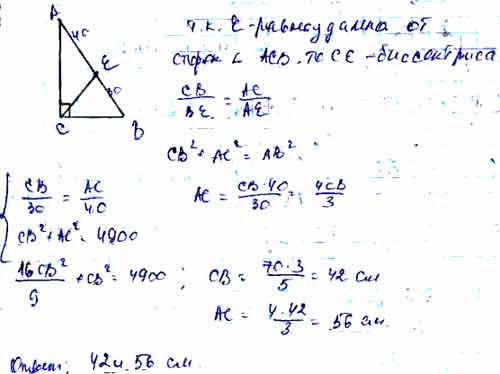 A
40
E
30
C
B
т.к. E-равноудалена от
сторон ∠ ACB. то CE - биссектриса
CB/BE = AC/AE
CB² + AC² = AB²
CB/30 = AC/40
CB² + AC² = 4900
AC = CB·40/30 = 4CB/3
16CB²/9 + CB² = 4900 ; CB = 70·3/5 = 42 см
AC = 4·42/3 = 56 см.
Ответ: 42 и 56 см.